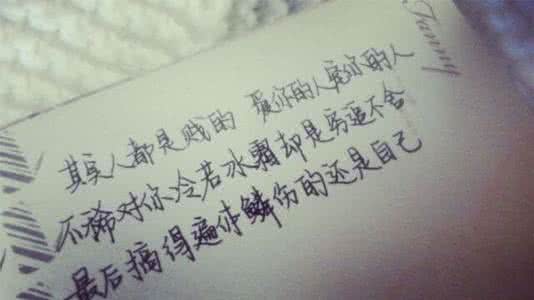 Fanny
其实人都是贱的 爱你的人宠你的人
不稀对你冷若冰霜却是穷追不舍
最后搞得遍体鳞伤的还是自己